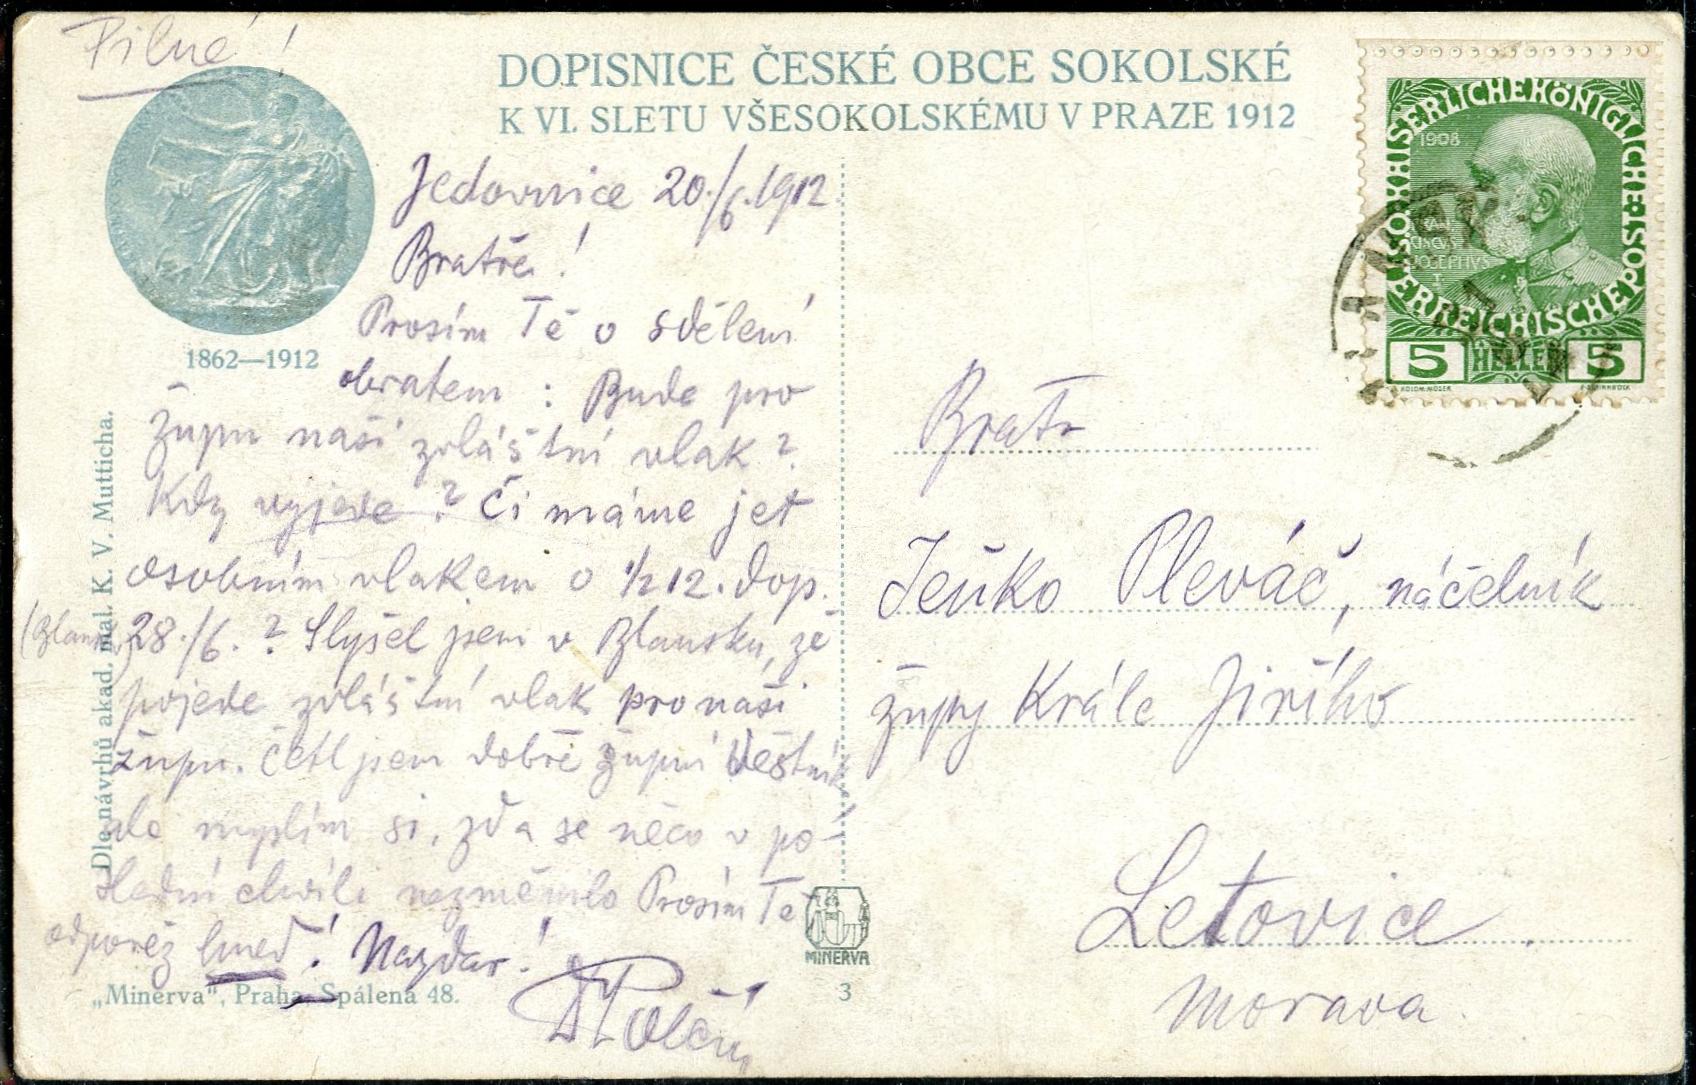 Pilné!
DOPISNICE ČESKÉ OBCE SOKOLSKÉ
K VI. SLETU VŠESOKOLSKÉMU V PRAZE 1912
1862—1912
Jedovnice 20./6. 1912.
Bratře!
Prosím Tě o sdělení
obratem : Bude pro
župu naši zvláštní vlak?
Kdy vyjede? Či máme jet
osobním vlakem o 1/2 12. dop.
(Blansko) 28./6.? Slyšel jsem v Blansku, že
pojede zvláštní vlak pro naši
župu. Četl jsem dobře župní Věstník,
ale myslím si, zda se něco v po-
slední chvíli nezměnilo Prosím Tě
odpověz hned! Nazdar!
Dle návrhů akad. mal. K. V. Mutticha.
„Minerva“, Praha, Spálená 48.
MINERVA
3
KAISERLICHE KÖNIGLICHE ÖSTERREICHISCHE POST
1908
FRANCISCUS JOSEPHUS I
5 HELLER 5
KOLOM. MOSER
Bratr
Ješko Pleváč, náčelník
župy Krále Jiřího
Letovice.
Morava.